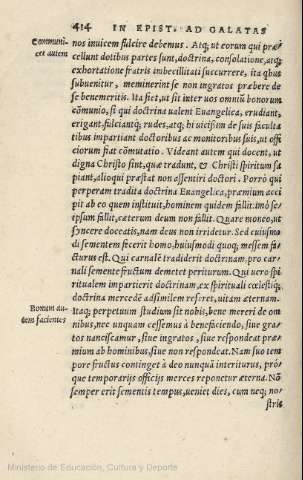 414 IN EPIST. AD GALATAS
Communi-
cet autem
nos inuicem fulcire debemus. Atq; ut eorum qui præ
cellunt dotibus partes sunt, doctrina, consolatione, atq;
exhortatione fratris imbecillitati succurrere, ita qbus
subuenitur, meminerint se non ingratos præbere de
se benemeritis. Ita fiet, ut sit inter uos omniū bonorum
cōmunio, si qui doctrina ualent Euangelica, erudiant,
erigant, fulciantq; rudes, atq; hi uicissim de suis faculta
tibus impartiant doctoribus ac monitoribus suis, ut offi
ciorum fiat cōmutatio. Videant autem qui docent, ut
digna Christo sint, quæ tradunt, & Christi spiritum sa
piant, alioqui præstat non assentiri doctori. Porrò qui
perperam tradita doctrina Euangelica, præmium acci
pit ab eo quem instituit, hominem quidem fallit. imò se
ipsum fallit, cæterum deum non fallit. Quare moneo, ut
syncere doceatis, nam deus non irridetur. Sed cuiusmo
di sementem fecerit homo, huiusmodi quoq; messem fa
cturus est. Qui carnalē tradiderit doctrinam, pro car-
nali semente fructum demetet periturum. Qui uero spi
ritualem impartierit doctrinam, ex spirituali cœlestiq;
doctrina mercedē adsimilem referet, uitam æternam.
Bonum au-
tem facientes
Itaq; perpetuum studium sit nobis, bene mereri de om
nibus, nec unquam cessemus à beneficiendo, siue gra-
tos nanciscamur, siue ingratos, siue respondeat præ-
mium ab hominibus, siue non respondeat. Nam suo tem
pore fructus continget à deo nunquā interiturus, pró
que temporarijs officijs merces reponetur æterna. Nō
semper erit sementis tempus, ueniet dies, cum neq; no-
stris
Ministerio de Educación, Cultura y Deporte